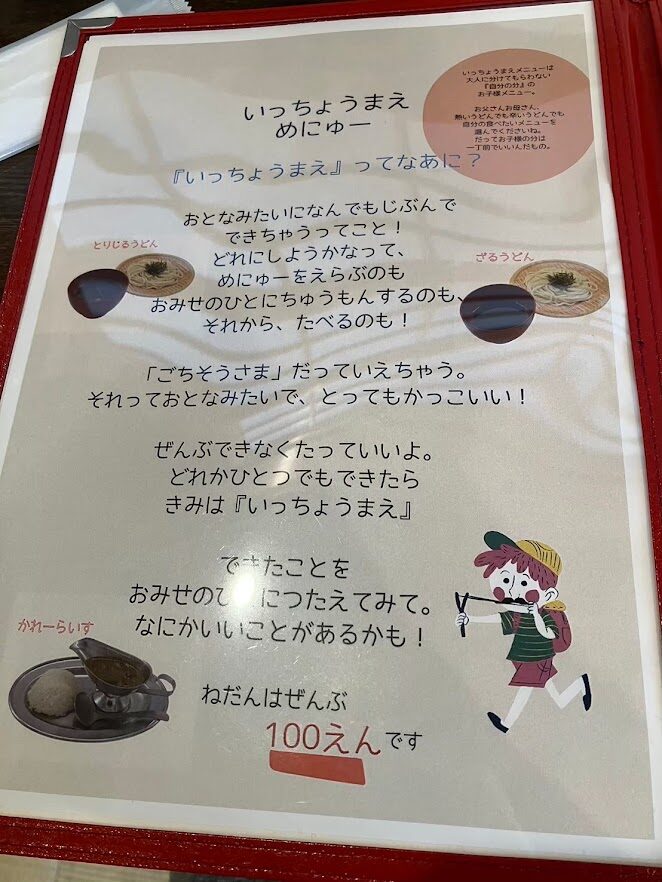 いっちょうまえ
めにゅー
いっちょうまえメニューは
大人に分けてもらわない
『自分の分』の
お子様メニュー。
お父さんお母さん、
熱いうどんでも辛いうどんでも
自分の食べたいメニューを
選んでくださいね。
だってお子様の分は
一丁前でいいんだもの。
『いっちょうまえ』ってなあに？
おとなみたいになんでもじぶんで
できちゃうってこと！
どれにしようかなって、
めにゅーをえらぶのも
おみせのひとにちゅうもんするのも、
それから、たべるのも！
とりじるうどん
ざるうどん
「ごちそうさま」だっていえちゃう。
それっておとなみたいで、とってもかっこいい！
ぜんぶできなくたっていいよ。
どれかひとつでもできたら
きみは『いっちょうまえ』
できたことを
おみせのひ につたえてみて。
なにかいいことがあるかも！
かれーらいす
ねだんはぜんぶ
100えんです